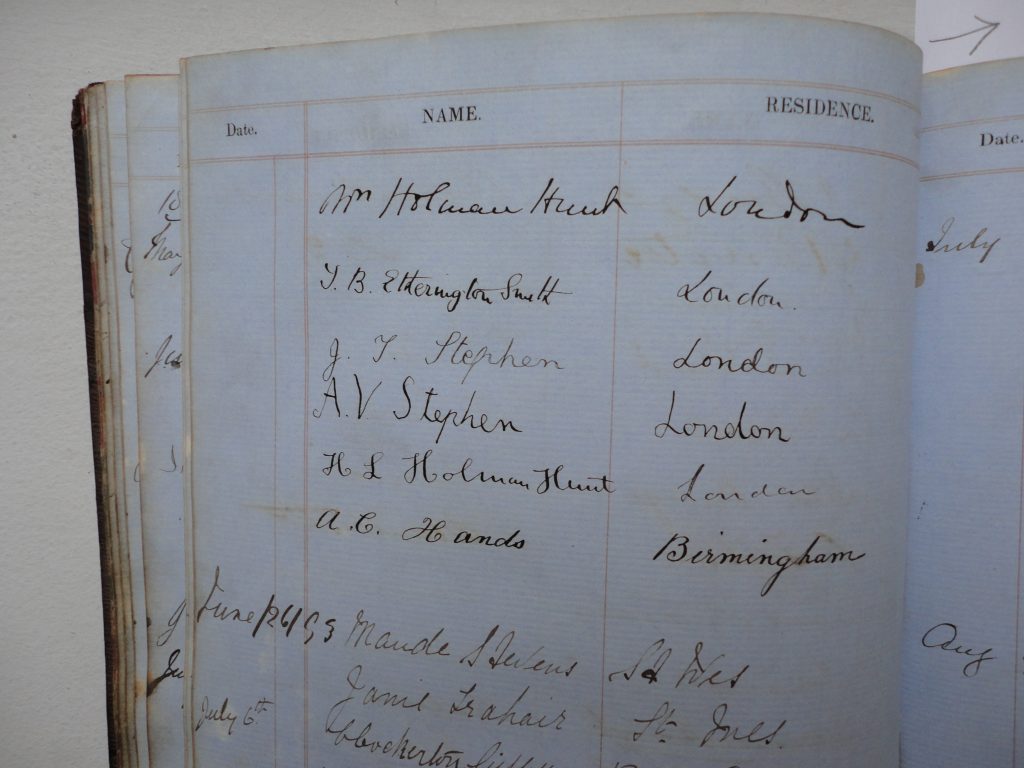 Date. NAME. RESIDENCE.
Wm Holman Hunt London
T. B. Etherington Smith London.
J. T. Stephen London
A. V Stephen London
H L Holman Hunt London
A. C. Hands Birmingham
June/26/93 Maude Stevens St Ives
Janie Trahair St. Ives.
July 6th.
Date.
July
Aug
May